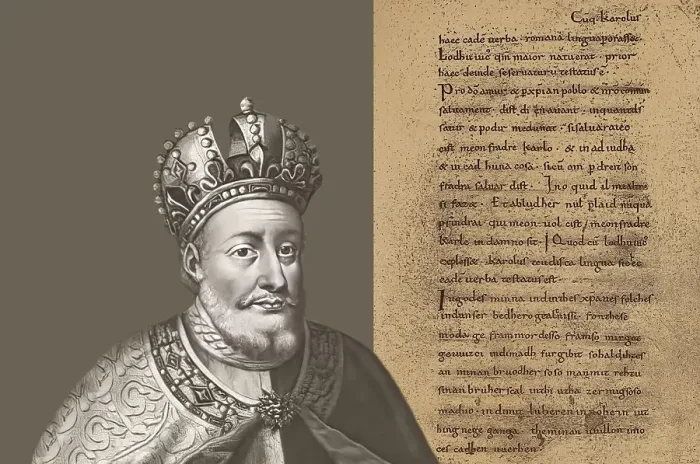 Cūq; karolus
haec eadē uerba romana lingua perorasset
Lodhuuic' qm̄ maior natu erat · prior
haec deinde se seruaturū testatus ē ·
Pro dō amur & p xp̄ian poblo & nr̄o cōmun
saluament · dist di en auant · inquantds
sauir & podir medunat · sisaluaraieo
cist meon fradre karlo · & in adiudha
& in cad huna cosa · sicū om p dreit son
fradra saluar dist · Ino quid il mialtre
si faz& · Et abludher nul plaid nūquā
prindrai · qui meon uol cist / meon fradre
karle in damno sit · Quod cū lodhuuic'
explesset · karolus teudisca lingua sic ec
eadē uerba testatus est ·
Ingodes minna indinthes xp̄anes folches
indunser bedhero gealtnissi · fonthese
moda ge frammordesso framso mirgot
geuuizci indimadh furgibit sohaldihtes
an minan bruodher soso manmit rehtu
sinan bruher scal inthi utha zermigsoso
maduo · indimit luheren in nohein iut
hing nege ganga · theminan uuillon imo
ces cadhen uuerhen ·